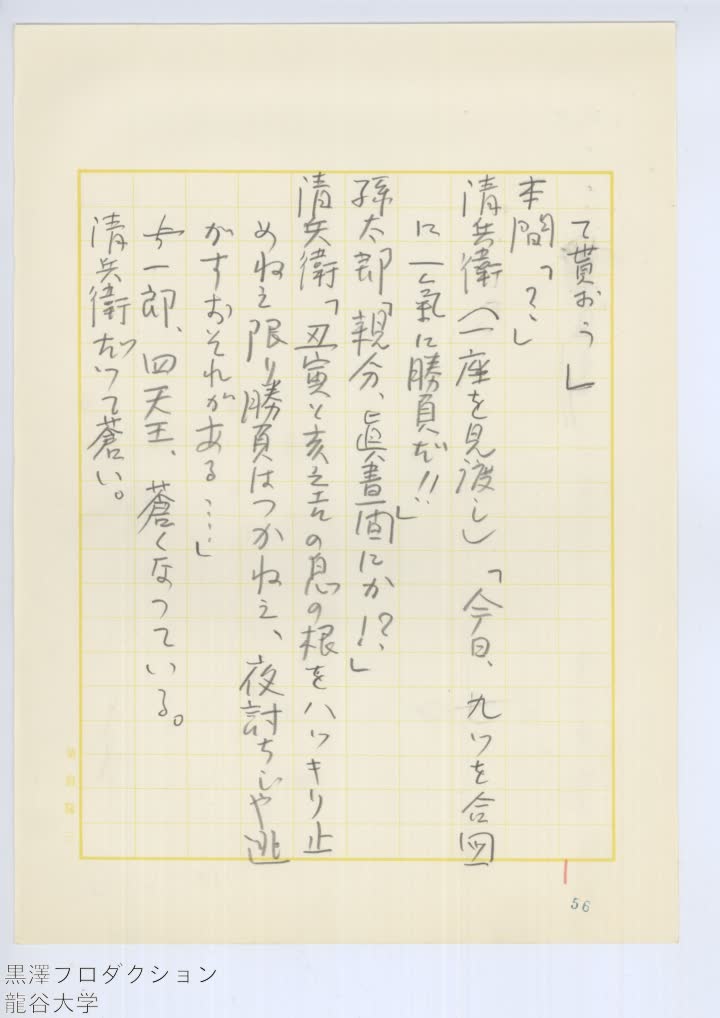 て貰おう」
本間「？」
清兵衛（一座を見渡し）「今日、九ツを合図
に一氣に勝負だ!!」
孫太郎「親分、眞晝間にか!?」
清兵衛「丑寅と亥之吉の息の根をハッキリ止
めねえ限り勝負はつかねえ、夜討ちじゃ逃
がすおそれがある……」
与一郎、四天王、蒼くなっている。
清兵衛だって蒼い。
56
黒澤プロダクション
龍谷大学